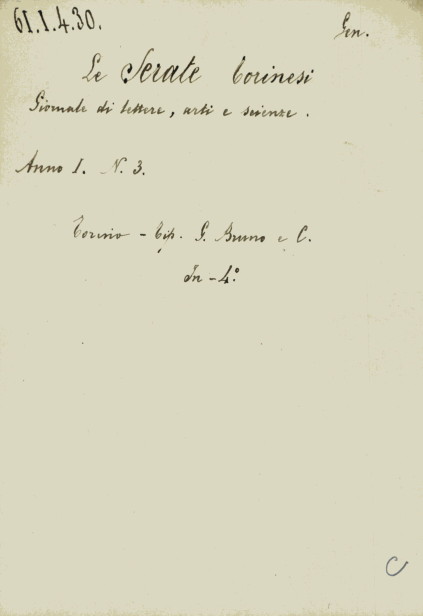 61.1.4.30.
Gen.
Le Serate Torinesi
Giornale di lettere, arti e scienze.
Anno I. N. 3.
Torino - Tip. G. Bruno e C.
In - 4.º
C